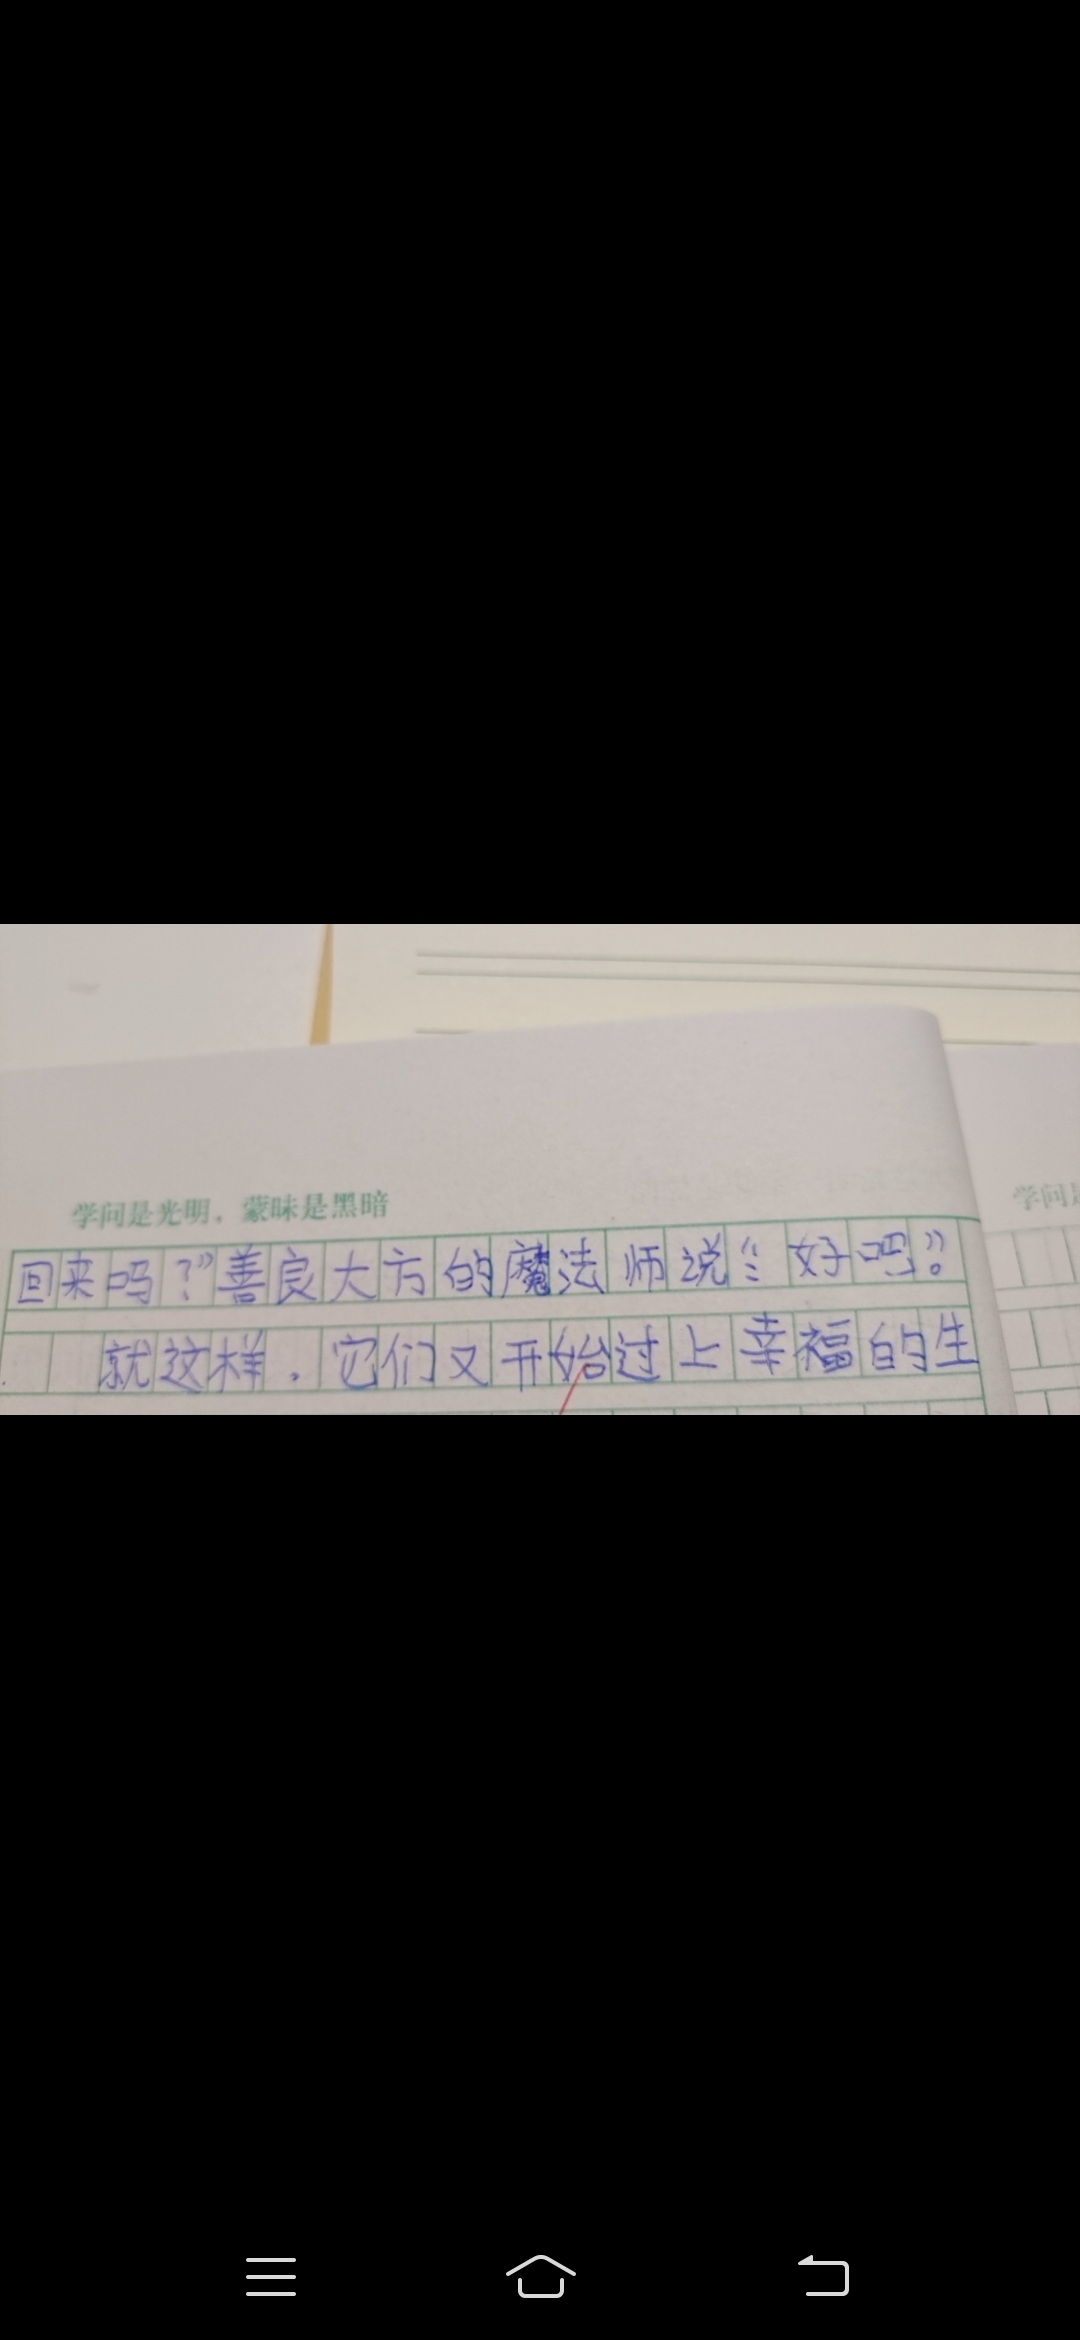 学问是光明，蒙昧是黑暗
学问
回来吗？”善良大方的魔法师说：“好吧。”
就这样，它们又开始过上幸福的生